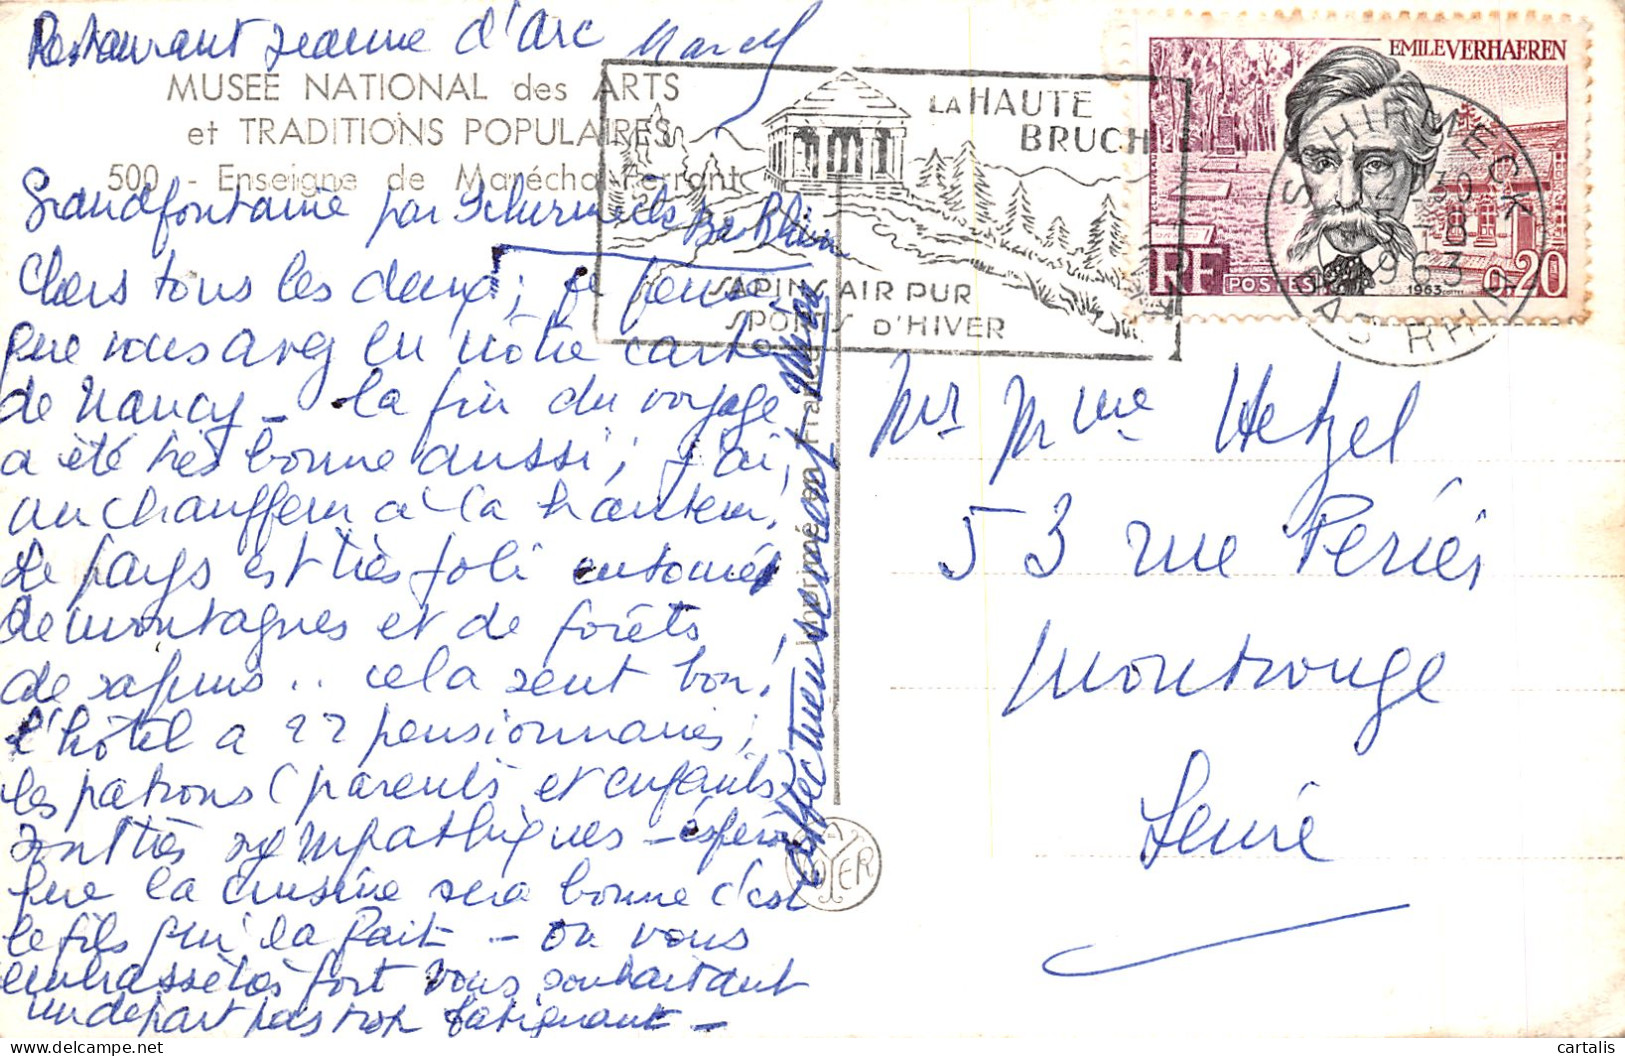 Restaurant Jeanne d'Arc Marcel
MUSÉE NATIONAL des ARTS
et TRADITIONS POPULAIRES
500 - Enseigne de Maréchal-Ferrant
Grandfontaine par Schirmeck Bas Rhin
Chers tous les deux, je pense
que vous avez eu notre carte
de Nancy - la fin du voyage
a été très bonne aussi, j'ai
un chauffeur à la hauteur!
Le pays est très joli entouré
de montagnes et de forêts
de sapins .. cela sent bon!
L'hôtel a 22 pensionnaires,
les patrons (parents et enfants
sont très sympathiques - espérons
que la cuisine sera bonne c'est
le fils qui la fait - on vous
embrasse très fort vous souhaitant
un départ pas trop fatigant -
affectueusement Mimi
Imprimé en France
LA HAUTE
BRUCHE
SAPINS AIR PUR
SPORTS D'HIVER
EMILE VERHAEREN
RF POSTES 1963 0,20
SCHIRMECK
1963
BAS RHIN
YER
Mr Mme Hetzel
53 rue Periés
Montrouge
Seine
cartalis